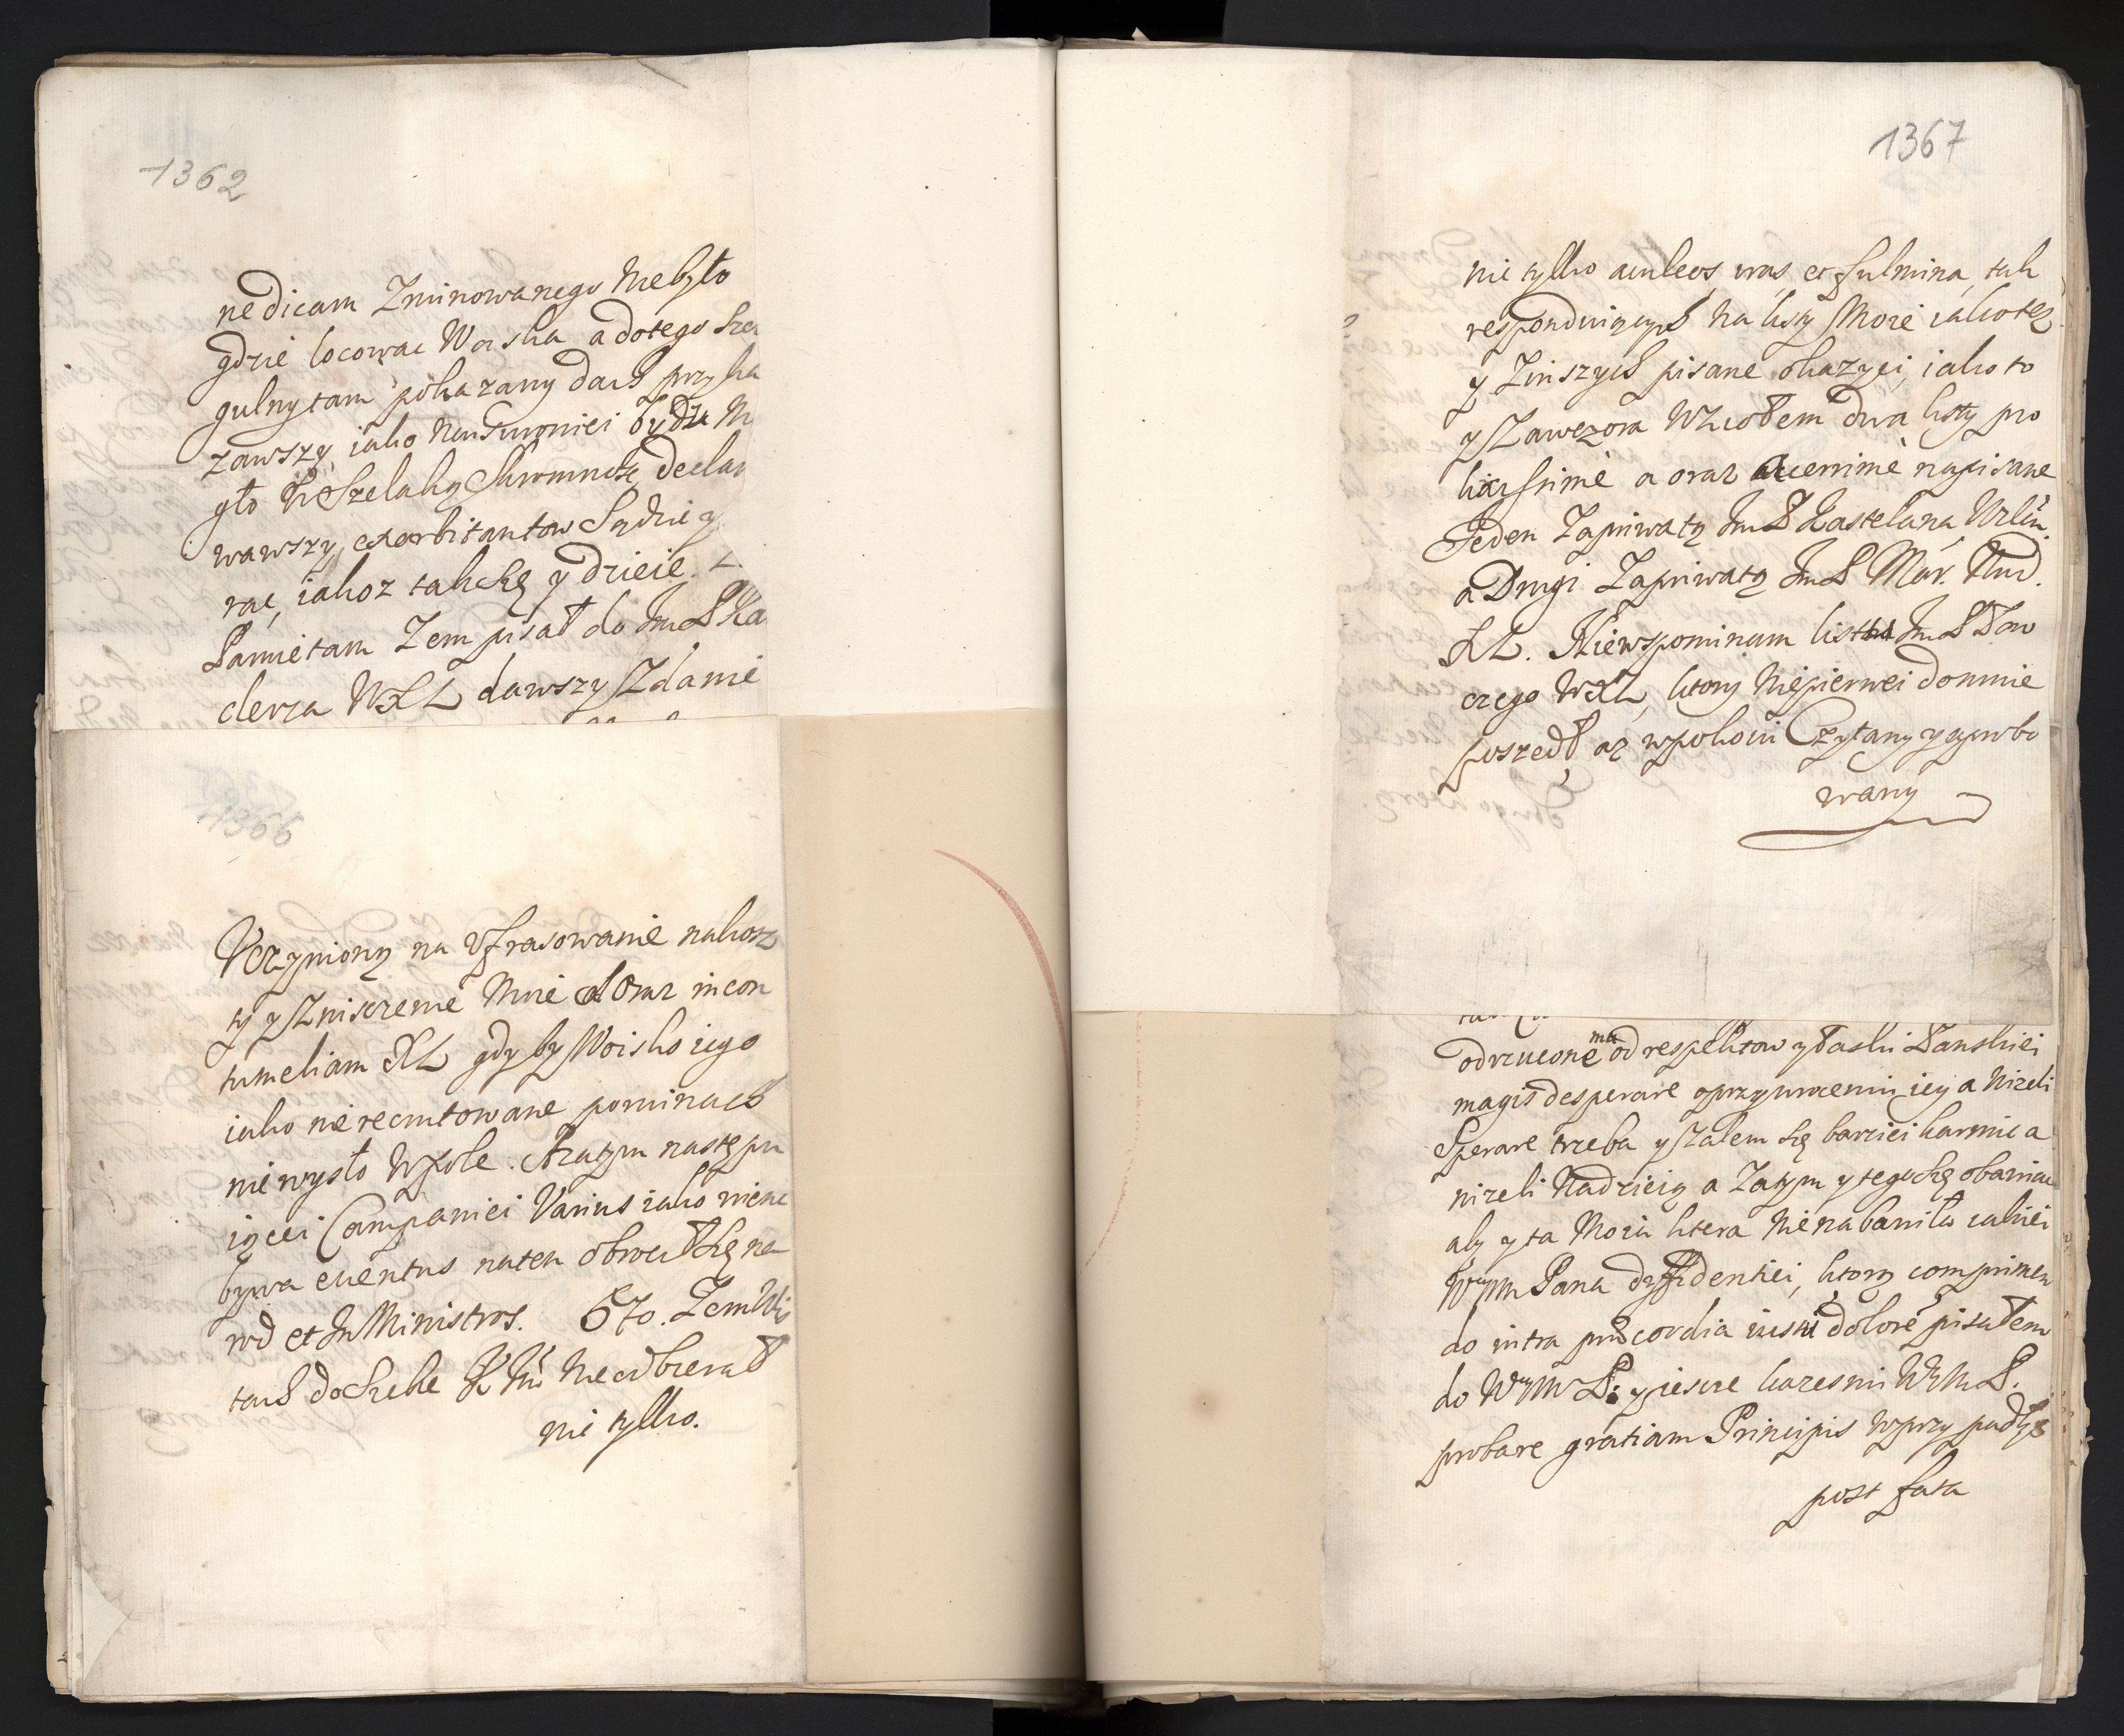 1362
ne dicam Zruinowanego Niebyło
gdzie locowac Woiska a dotego Sze
gulny tam pokazany dach przyka
zawszy iako Nausurowiei bydz
gło wszelaką Skromność declar
wawszy exorbitantow Sądzic y
rac, iakoz tak Się y dzieie.
Pamietam Zem pisał do Im P Ka
clerza WXL dawszy Zdanie
1366
Uczyniony na Ufrasowanie nakosz
ty y Zniszczenie Moie a Oraz incon
tumeliam XL gdy by Woisko iego
iako nie recrutowane powinach
nie wyszło Wpole. A zatym nastepu
iącei Campaniei Varius iako wiene
bywa euentus naten obrocił Się na
rod et In Ministros. 6to. Zem
tach do Siebie Nie odbierał
nie tylko.
1367
nie tylko aculeos, uras, et fulmina, tak
responduiących Na listy Moie iako tez
y Zinszych pisane okazyi, iako to
y Zawczora Wziołem dwa listy pro
lixissime a oraz acerrime napisane
Jeden Zapriwatą Im P Kastelana Wileń.
a Drugi Zapriwatą Im P Mar. Nad.
XL. Niewspominam listu Im P Łow
czego WXL, ktory Niepierwei do mnie
poszedł az wpokoiu Czytany y aprobo
wany
odrzucone ma od respektow y Łaski Panskiei
magis desperare o przywroceniu iey a Nizeli
Sperare trzeba y Zalem Się barziei karmic a
nizeli Nadzieią a Zatym y tego Się obawiac
aby y ta Moia litera Nie nabawiła iakiei
WMM Pana dyffidentiei, ktorą comprimen
do intra præcordia iusti dolore pisałem
do WMM P: y iescze kazesmi WMM P.
probare gratiam Principis Wprzypadkach
post fata